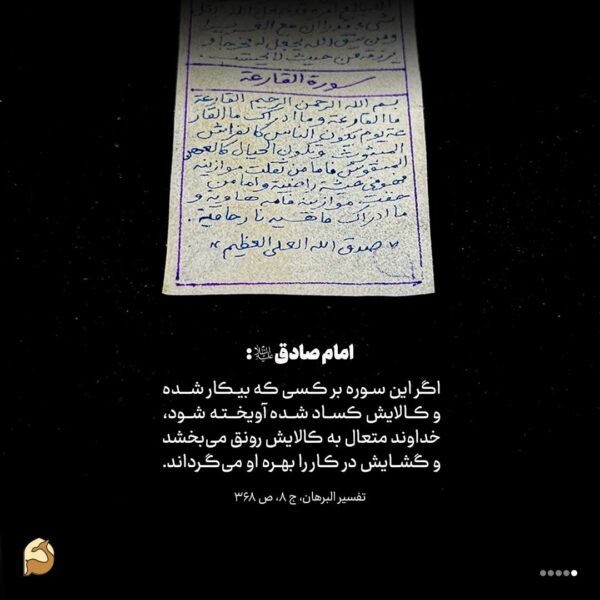 ومن يتق الله يجعل له مخرجا و
يرزقه من حيث لا يحتسب
سورة القارعة
بسم الله الرحمن الرحيم القارعة
ما القارعة وما ادراك ما القار
عة يوم يكون الناس كالفراش
المبثوث وتكون الجبال كالعهن
المنفوش فاما من ثقلت موازينه
فهو في عيشة راضية واما من
خفت موازينه فامه هاوية و
ما ادراك ماهيه نار حامية .
« صدق الله العلي العظيم »
امام صادق علیه‌السلام :
اگر این سوره بر کسی که بیکار شده
و کالایش کساد شده آویخته شود،
خداوند متعال به کالایش رونق می‌بخشد
و گشایش در کار را بهره او می‌گرداند.
تفسیر البرهان، ج ۸، ص ۳۶۸